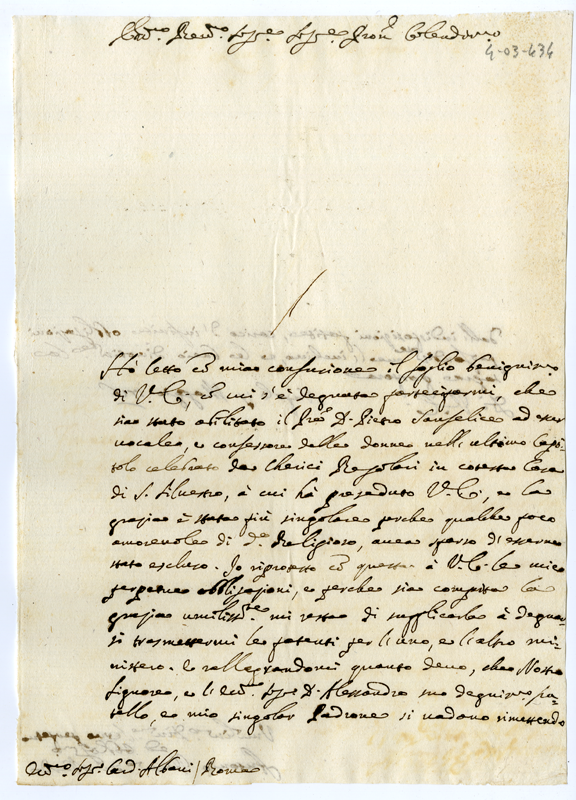 Em.mo Rev.mo Sig.re Sig.re Pron. Colendiss.mo
4-03-434
Hò letto cõ mia confusione il foglio benigniss.mo
di V. E., cõ cui s'è degnata parteciparmi, che
sia stato abilitato il Pre D. Pietro Sanfelice ad esser
vocale, e confessore delle donne nell'ultimo Capi-
tolo celebrato da Cherici Regolari in cotesta Casa
di S. Silvestro, à cui hà preseduto V. E., e la
grazia è stata più singolare perche qualche poco
amorevole di d.o Religioso, avea sparso d'esserne
stato escluso. Io riprotesto cõ questa à V. E. le mie
perpetue obbligazioni, e perche sia compita la
grazia umilissm.te mi resta di supplicarla à degnar-
si trasmettermi le patenti per l'uno, e l'altro mi-
nistero. E rallegrandomi quanto devo, che Nostro
Signore, e li Em.mo Sig.r D. Alessandro suo degniss.mo fra-
tello, e mio singolar Padrone si vadano rimettendo
Em.mo Sig.r Card. Albani / Roma